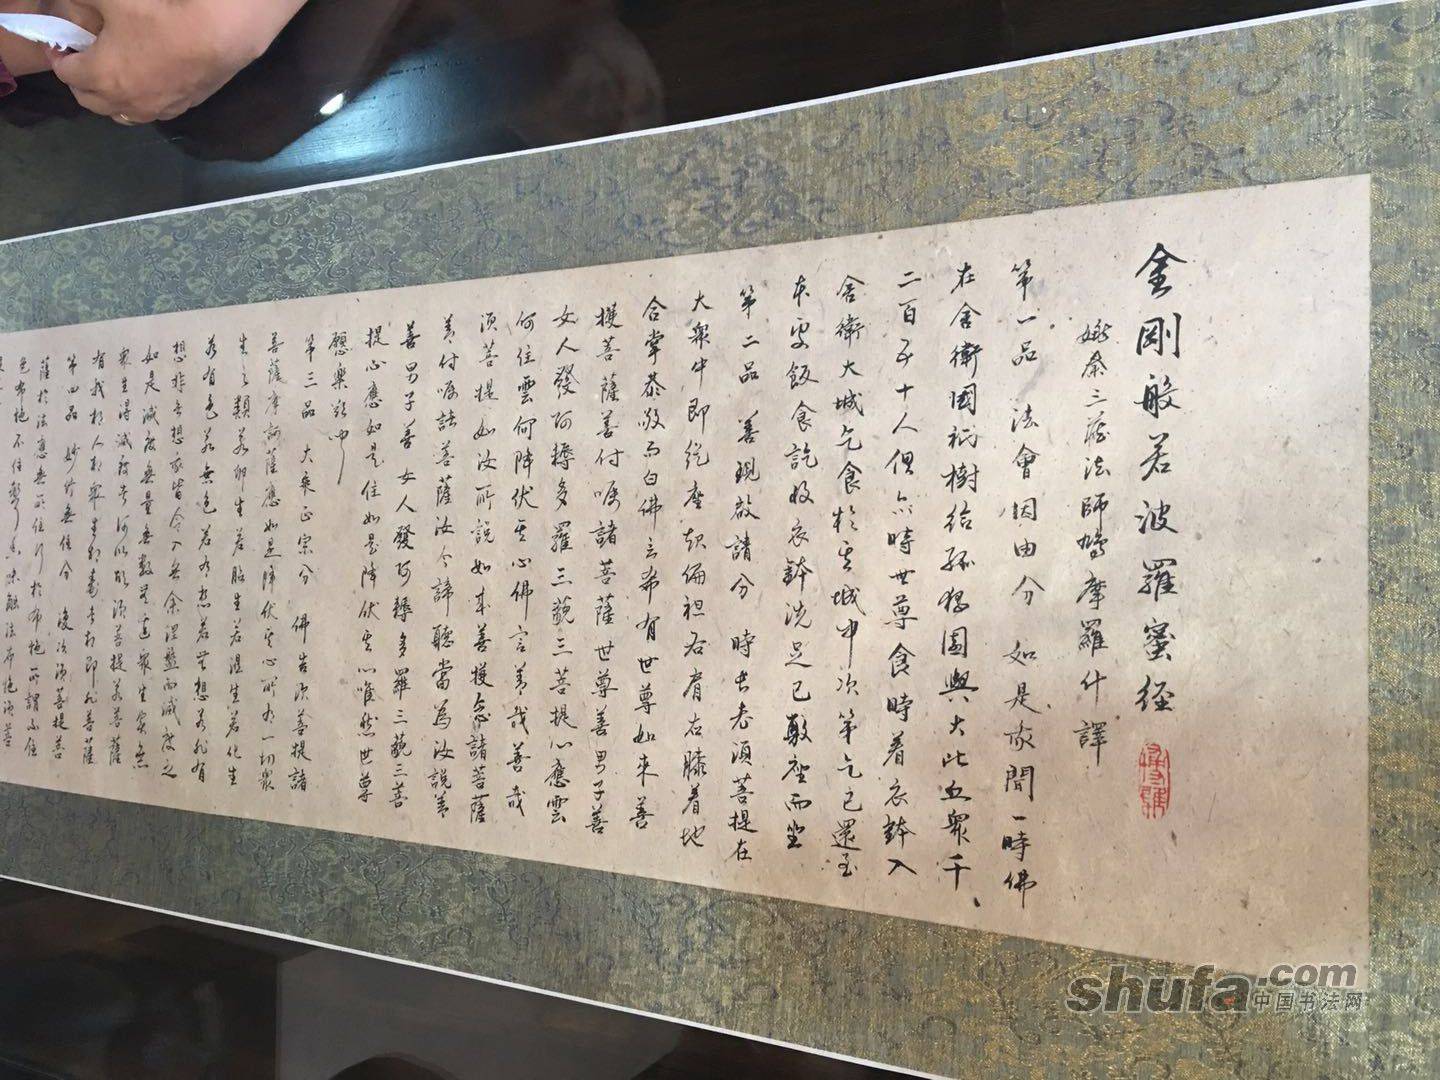 金剛般若波羅蜜経
姚秦三藏法師鳩摩羅什譯
第一品 法會因由分 如是我聞一時佛
在舍衛國祇樹給孤獨園與大比丘眾千
二百五十人俱尒時世尊食時着衣鉢入
舍衛大城乞食於其城中次第乞已還至
本處飯食訖收衣鉢洗足已敷座而坐
第二品 善現啟請分 時長老須菩提在
大眾中即從座起偏袒右肩右膝着地
合掌恭敬而白佛言希有世尊如来善
護菩薩善付嘱諸菩薩世尊善男子善
女人發阿耨多羅三藐三菩提心應雲
何住雲何降伏其心佛言善哉善哉
須菩提如汝所說如来善護念諸菩薩
善付嘱諸菩薩汝今諦聽當為汝說善
善男子善女人發阿耨多羅三藐三菩
提心應如是住如是降伏其心唯然世尊
願樂欲聞
第三品 大乘正宗分 佛告須菩提諸
菩薩摩訶薩應如是降伏其心所有一切眾
生之類若卵生若胎生若濕生若化生
若有色若無色若有想若無想若非有
想非無想我皆令入無余涅盤而滅度之
如是滅度無量無數無邊眾生實無
眾生得滅度者何以故須菩提若菩薩
有我相人相眾生相壽者相即非菩薩
第四品 妙行無住分 復次須菩提菩
薩於法應無所住行於布施所謂不住
色布施不住聲香味觸法布施須菩
shufa.com
中国书法网